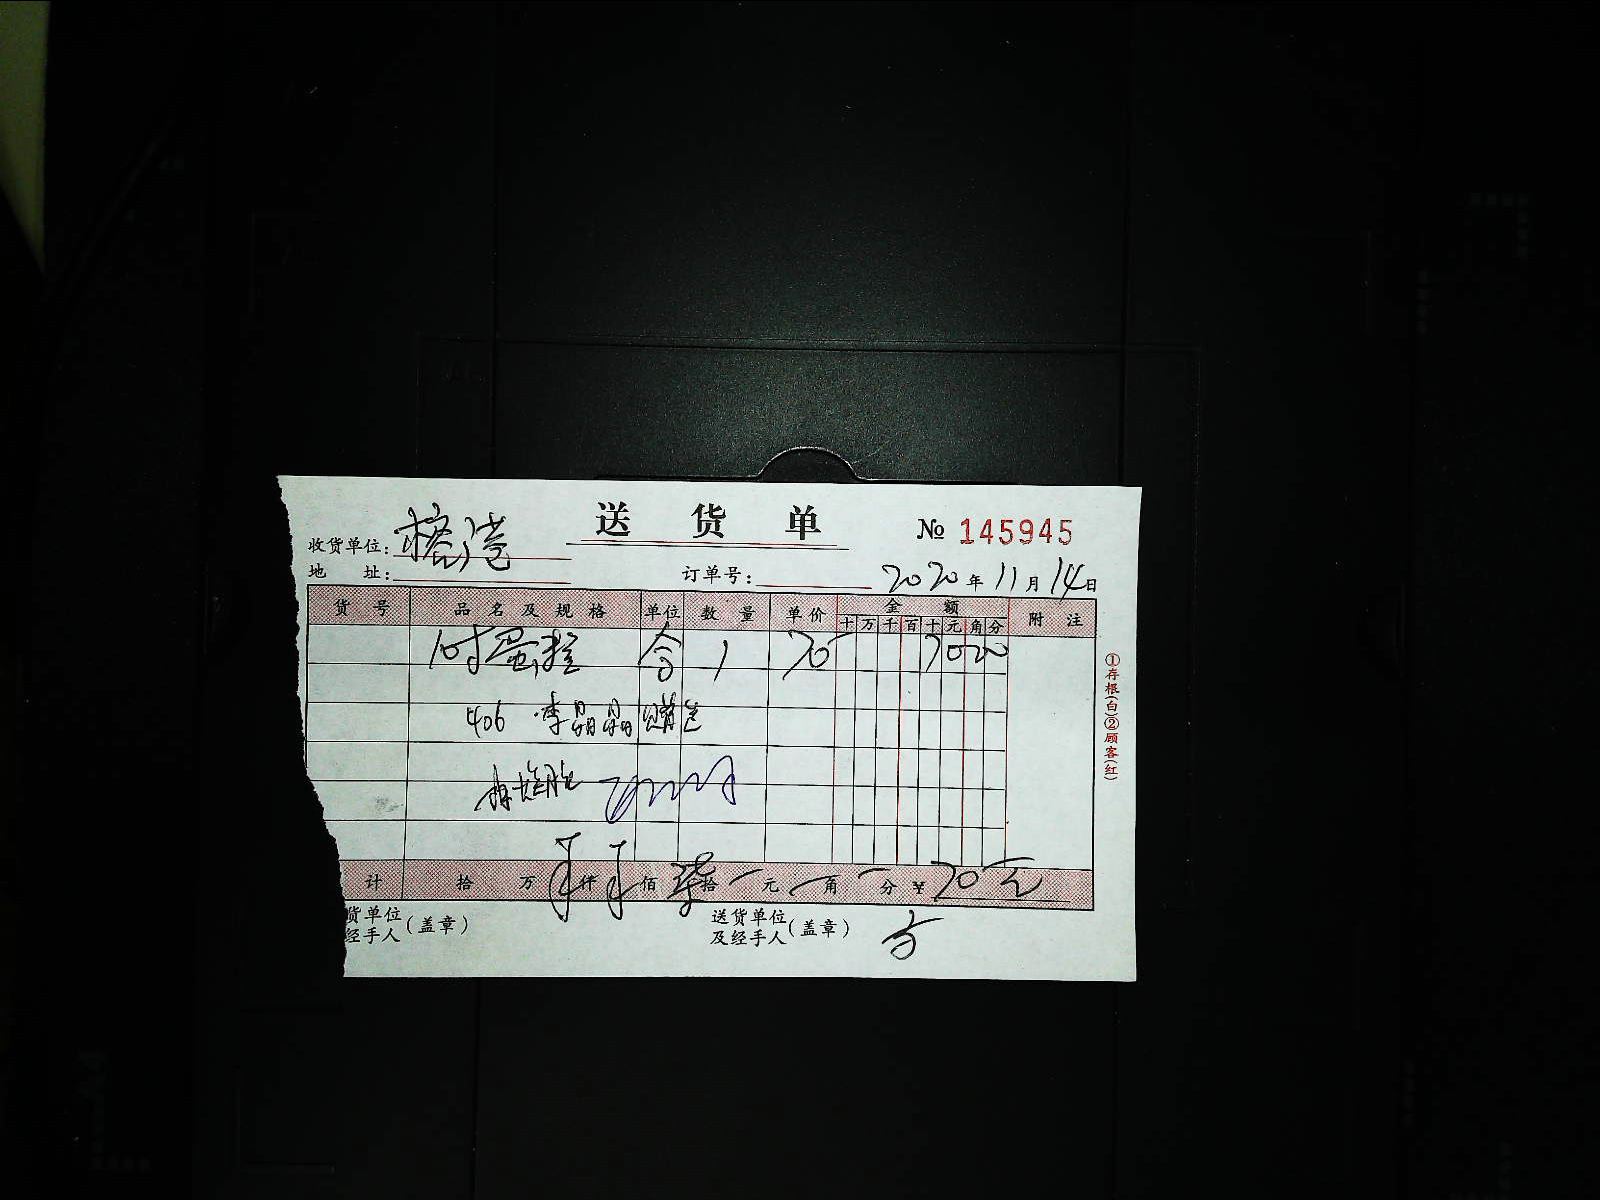 送 货 单
№ 145945
收货单位: 榕港
地 址: 订单号: 2020年11月14日
货 号 品 名 及 规 格 单位 数 量 单价 金 额 附 注
十 万 千 百 十 元 角 分
10寸蛋糕 1 70 7000
406 李晶晶
计 拾 万 仟 佰 柒拾 元 角 分 ¥ 70元
货单位 (盖章) 送货单位 (盖章)
经手人 及经手人 方
①存根(白)②顾客(红)